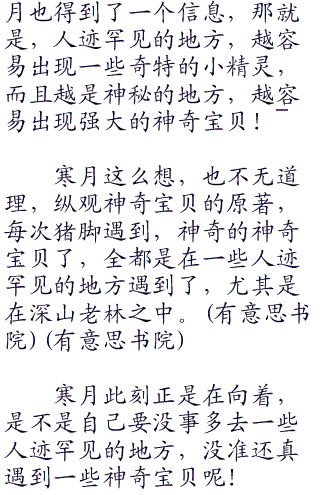 月也得到了一个信息，那就
是，人迹罕见的地方，越容
易出现一些奇特的小精灵，
而且越是神秘的地方，越容
易出现强大的神奇宝贝！
寒月这么想，也不无道
理，纵观神奇宝贝的原著，
每次猪脚遇到，神奇的神奇
宝贝了，全都是在一些人迹
罕见的地方遇到了，尤其是
在深山老林之中。(有意思书
院)(有意思书院)
寒月此刻正是在向着，
是不是自己要没事多去一些
人迹罕见的地方，没准还真
遇到一些神奇宝贝呢！